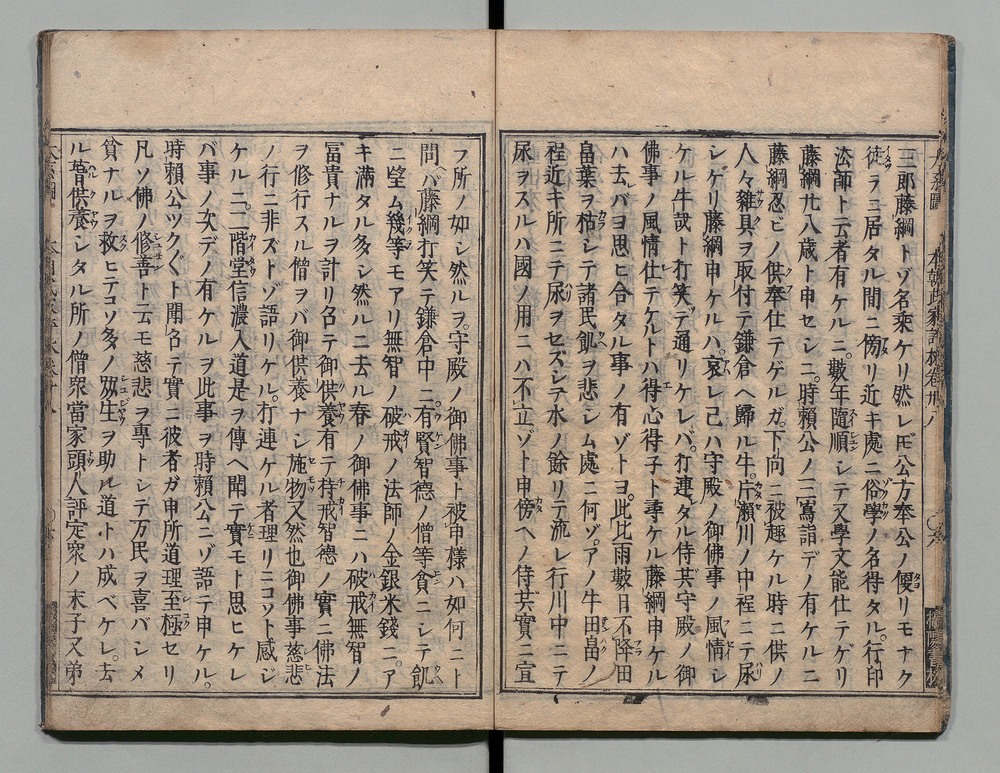 三郎藤綱トゾ名乗ケリ然レ𪜈公方奉公ノ便リモナク
徒ラニ居タル間ニ傍リ近キ處ニ俗學ノ名得タル。行印
法師ト云者有ケルニ。數年隨順シテ又學文能仕テゲリ
藤綱廿八歳ト申セシニ。時頼公ノ三嶌詣デノ有ケルニ
藤綱忍ビノ供奉仕テゲルガ。下向ニ被趣ケル時ニ供ノ
人々雜具ヲ取付テ鎌倉ヘ歸ル牛。片瀬川ノ中程ニテ尿
シゲリ藤綱申ケルハ。哀レ己ハ守殿ノ御佛事ノ風情シ
ケル牛哉ト打笑テ通リケレバ。打連レタル侍共守殿ノ御
佛事ノ風情仕テケルトハ得心得子ト尋ケル藤綱申ケル
ハ去バヨ思ヒ合タル事ノ有ゾトヨ。此比雨數日不降田
畠葉ヲ枯シテ諸民飢ヲ悲シム處ニ何ゾ。アノ牛田畠ノ
程近キ所ニテ尿ヲセズシテ水ノ餘リテ流レ行川中ニテ
尿ヲスルハ國ノ用ニハ不立ゾト申傍ヘノ侍共實ニ宜
フ所ノ如シ然ルヲ。守殿ノ御佛事ト被申樣ハ如何ニト
問ヘバ藤綱打笑テ鎌倉中ニ有賢智德ノ僧等貧ニシテ飢
ニ望ム幾等モアリ無智ノ破戒ノ法師ノ金銀米錢ニ。ア
キ滿タル多シ然ルニ去ル春ノ御佛事ニハ破戒無智ノ
冨貴ナルヲ計リ名テ御供養有テ持戒智德ノ實ニ佛法
ヲ修行スル僧ヲバ御供養ナシ施物又然也御佛事慈悲
ノ行ニ非ズトゾ語リケル。打連ケル者理リニコソト感ジ
ケルニ。二階堂信濃入道是ヲ傳ヘ聞テ實モト思ヒケレ
バ事ノ次デノ有ケルヲ此事ヲ時頼公ニゾ語テ申ケル。
時頼公ツクヾヽト聞名テ實ニ彼者ガ申所道理至極セリ
凡ソ佛ノ修善ト云モ慈悲ヲ專トシテ万民ヲ喜バシメ
貧ナルヲ救ヒテコソ多ノ殺生ヲ助ル道トハ成ベケレ。去
ル昔供養シタル所ノ僧衆當家頭人評定衆ノ末子又弟